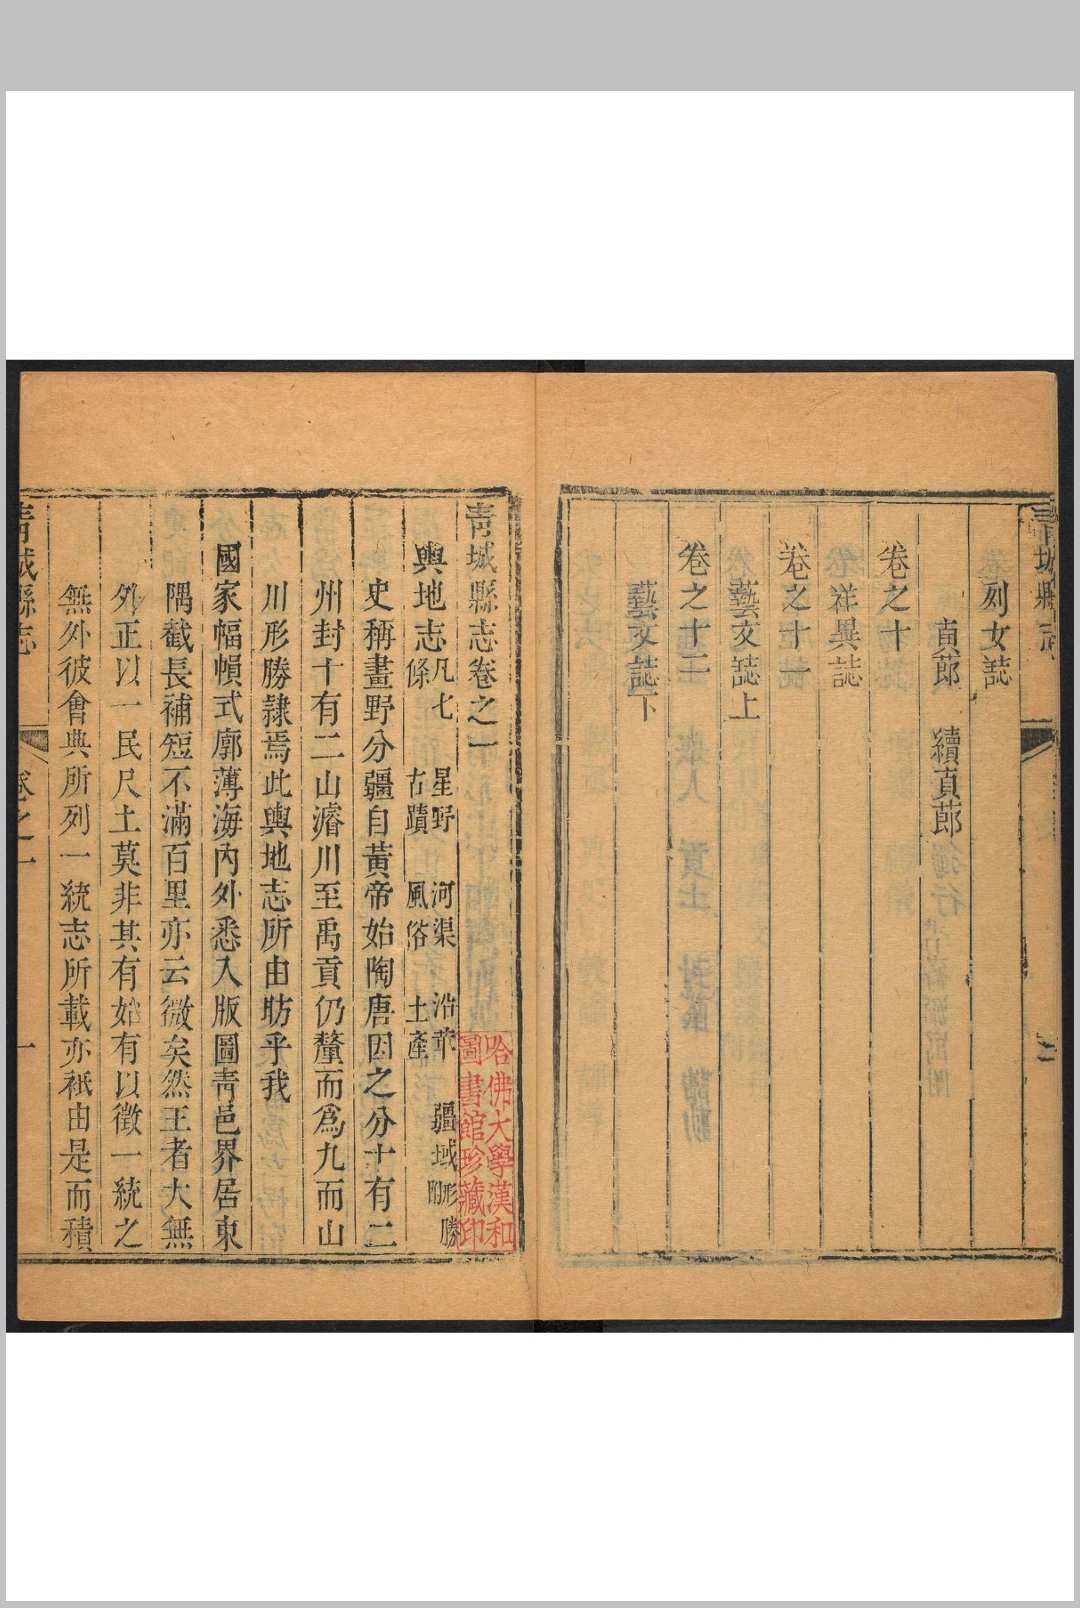 列女誌
貞節　續貞節
卷之十
祥異誌
卷之十一
藝文誌上
卷之十二
藝文誌下
青城縣志卷之一
輿地志凡七條　星野　河渠　沿革　疆域形勝附　古蹟　風俗　土產
史稱畫野分疆自黃帝始陶唐因之分十有二
州封十有二山濬川至禹貢仍釐而爲九而山
川形勝隸焉此輿地志所由昉乎我
國家幅幀式廓薄海內外悉入版圖靑邑界居東
隅截長補短不滿百里亦云微矣然王者大無
外正以一民尺土莫非其有始有以徵一統之
無外彼會典所列一統志所載亦祇由是而積
青城縣志　卷之一　一
哈佛大學漢和
圖書館珍藏印